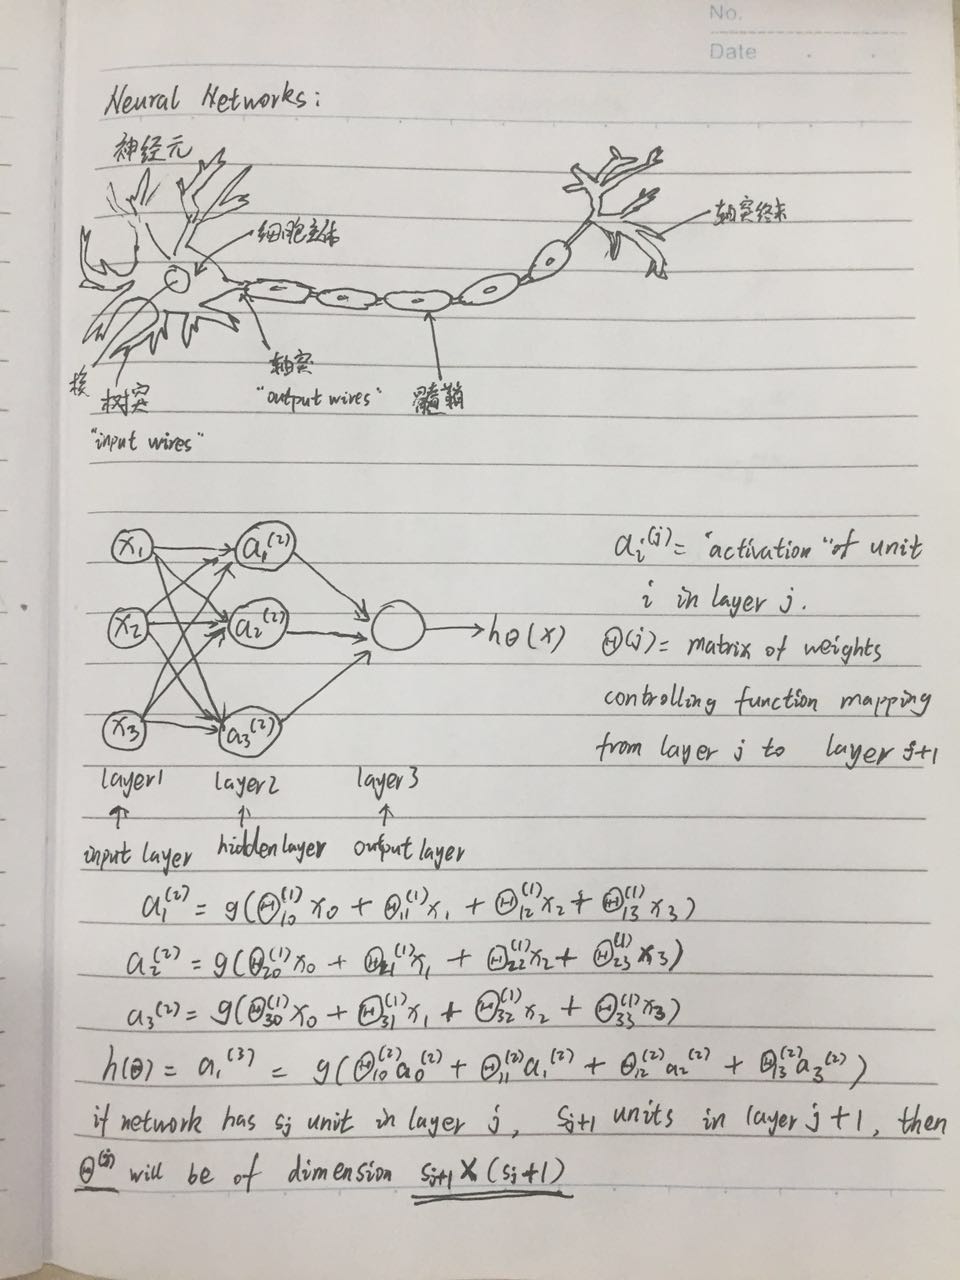 No.
Date
Neural Networks:
神经元
细胞主体
轴突终末
核
树突
"input wires"
轴突
"output wires"
髓鞘
x₁
x₂
x₃
a₁⁽²⁾
a₂⁽²⁾
a₃⁽²⁾
hθ(x)
layer1
layer2
layer3
input layer
hidden layer
output layer
aᵢ⁽ʲ⁾= "activation" of unit
i in layer j.
Θ(j)= matrix of weights
controlling function mapping
from layer j to layer j+1
a₁⁽²⁾ = g(Θ₁₀⁽¹⁾x₀ + Θ₁₁⁽¹⁾x₁ + Θ₁₂⁽¹⁾x₂ + Θ₁₃⁽¹⁾x₃)
a₂⁽²⁾ = g(Θ₂₀⁽¹⁾x₀ + Θ₂₁⁽¹⁾x₁ + Θ₂₂⁽¹⁾x₂ + Θ₂₃⁽¹⁾x₃)
a₃⁽²⁾ = g(Θ₃₀⁽¹⁾x₀ + Θ₃₁⁽¹⁾x₁ + Θ₃₂⁽¹⁾x₂ + Θ₃₃⁽¹⁾x₃)
h(Θ) = a₁⁽³⁾ = g(Θ₁₀⁽²⁾a₀⁽²⁾ + Θ₁₁⁽²⁾a₁⁽²⁾ + Θ₁₂⁽²⁾a₂⁽²⁾ + Θ₁₃⁽²⁾a₃⁽²⁾)
if network has sⱼ unit in layer j, sⱼ₊₁ units in layer j+1, then
Θ⁽ʲ⁾ will be of dimension sⱼ₊₁ X (sⱼ+1)